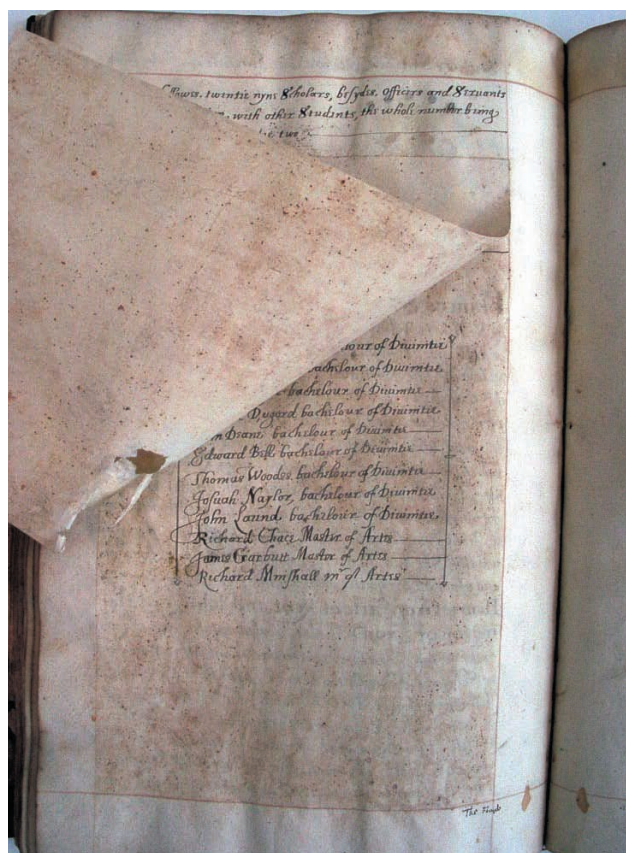 twentie nyne Scholars, besydes Officers and Servants
with other Students, the whole number being
two
our of Divinitie
bachelour of Divinitie
bachelour of Divinitie
Dugard bachelour of Divinitie
Deane bachelour of Divinitie
Edward bachelour of Divinitie
Thomas Woodes bachelour of Divinitie
Josuah Naylor, bachelour of Divinitie
John Laund bachelour of Divinitie,
Richard Chace Master of Artes
James Garbutt Master of Artes
Richard Minshall mr of Artes
The